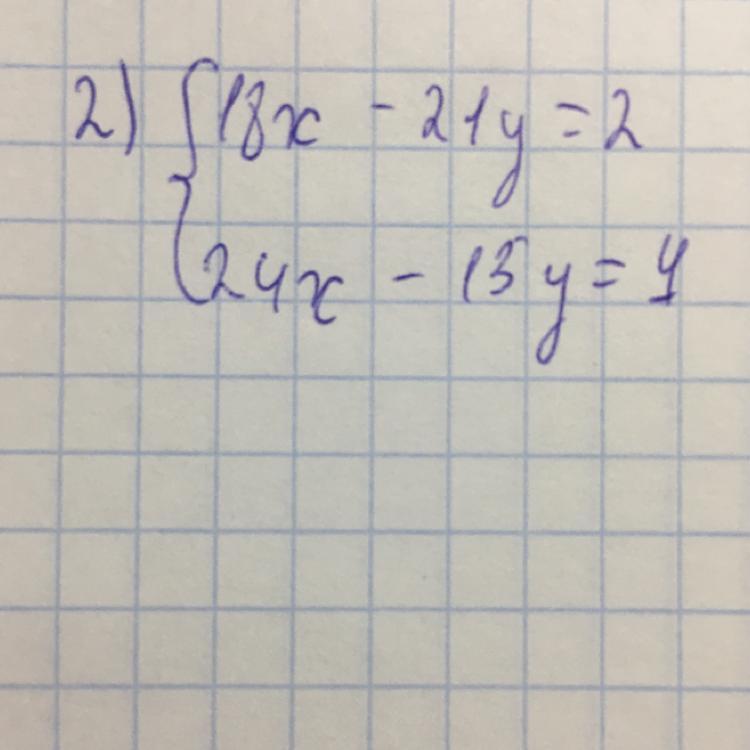 2) { 18x - 21y = 2
24x - 15y = 7